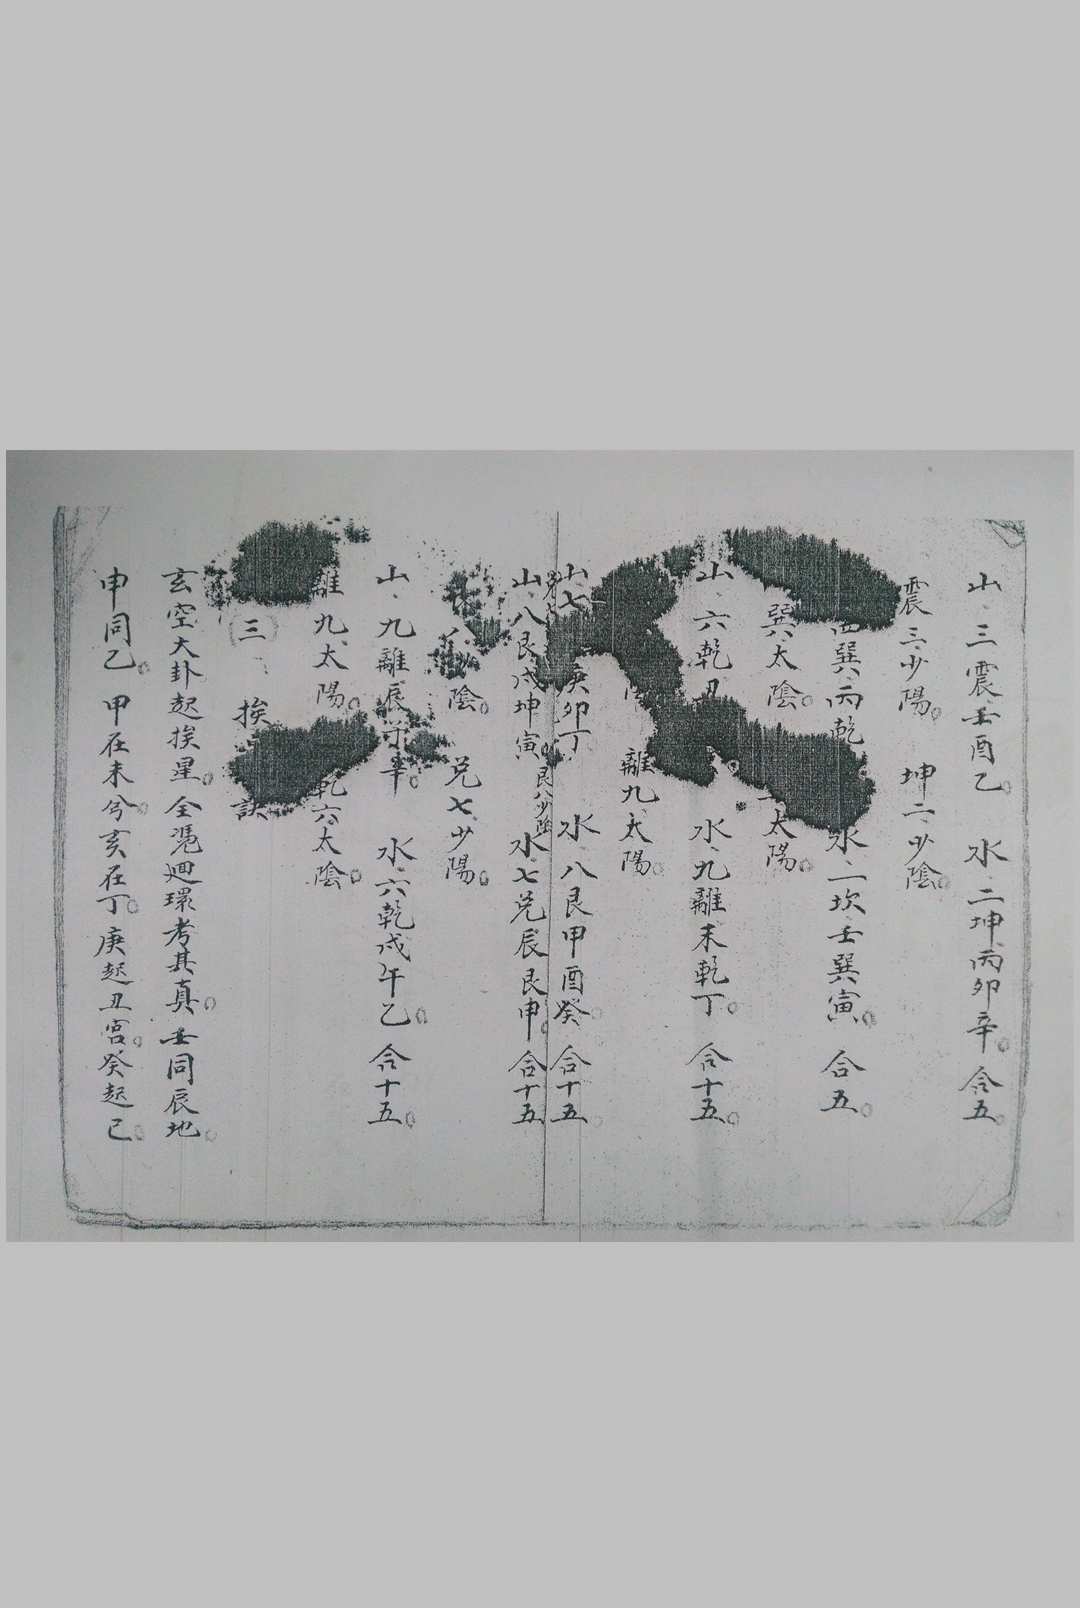 山、三震、壬酉乙。 水、二坤、丙卯辛。 合五。
震三、少陽。 坤二、少陰。
巽、丙乾 水、一坎、壬巽寅。 合五。
巽、太陰。 太陽。
山、六乾、丑 水、九離、未乾丁。 合十五。
離九、太陽。
山、七 庚卯丁。 水、八艮、甲酉癸。 合十五。
艮八少陰
山、八艮、戌坤寅。 水、七兌、辰艮申。 合十五。
陰。 兌七、少陽。
山、九離、辰 辛。 水、六乾、戌午乙。 合十五。
離九、太陽。 乾六、太陰。
三、挨 訣
玄空大卦起挨星。全憑迴環考其真。壬同辰地。
申同乙。甲在未兮。亥在丁。庚起丑宮。癸起己。